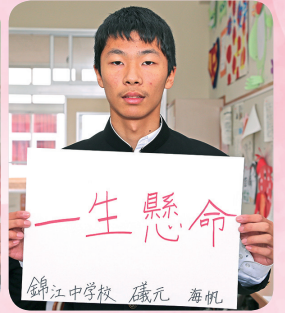 一生懸命
錦江中学校 礒元 海帆